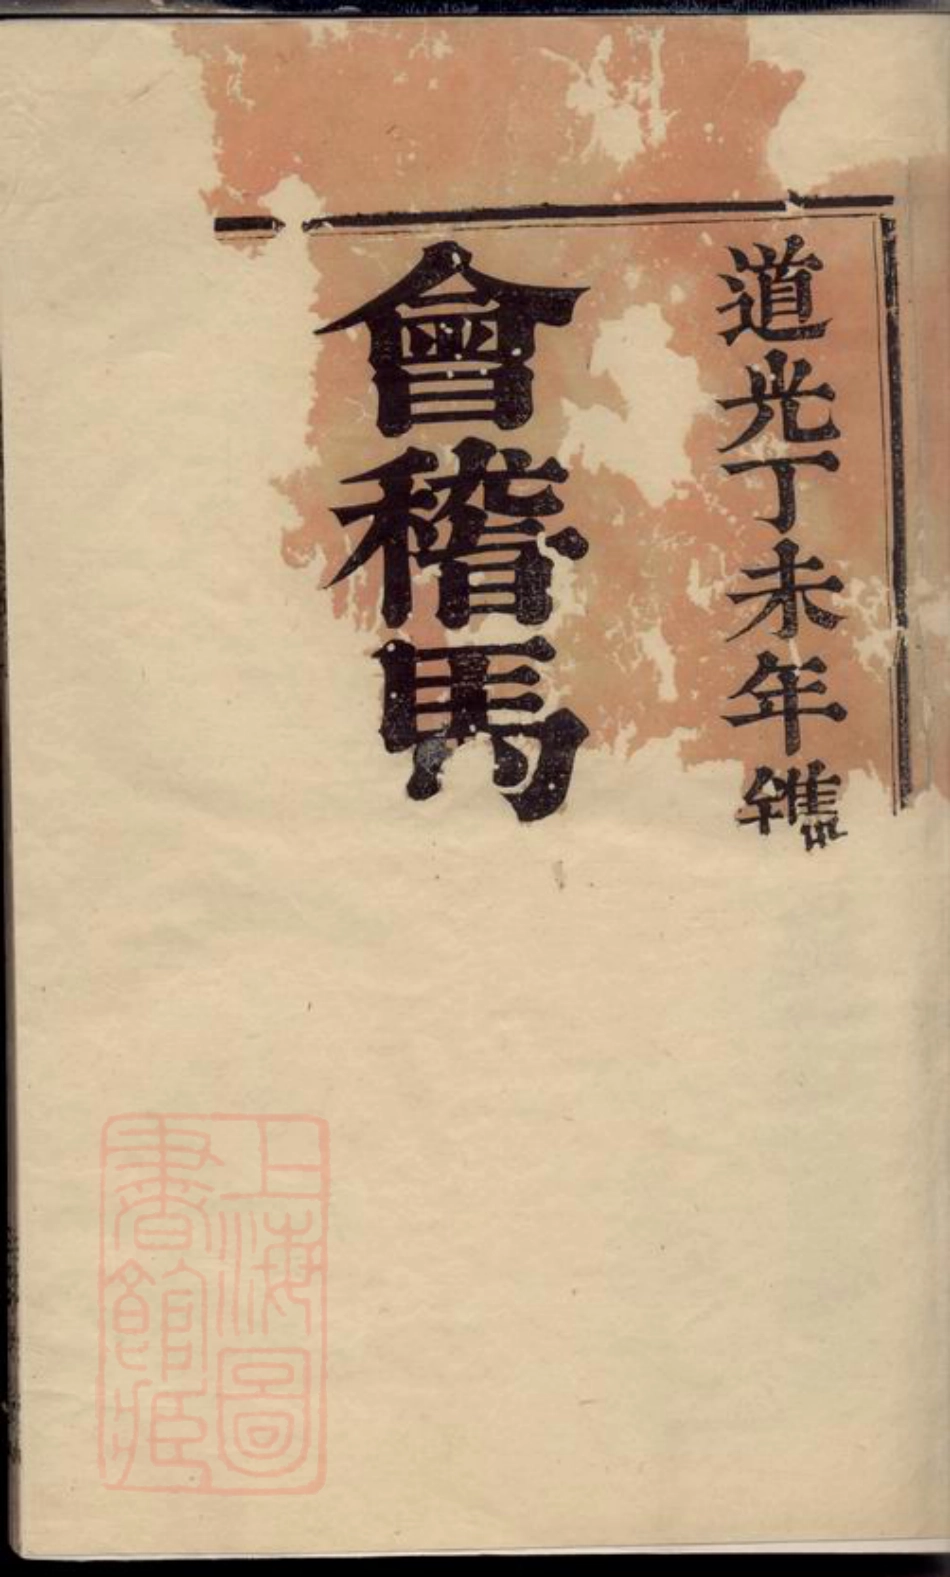 道光丁未年鐫
會稽馬
上海圖
書館藏